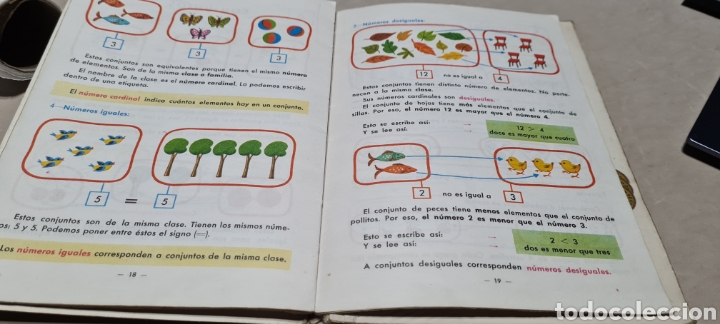 3
3
3
Estos conjuntos son equivalentes porque tienen el mismo número
de elementos. Son de la misma clase o familia.
El nombre de la clase es el número cardinal. Lo podemos escribir
dentro de una etiqueta.
El número cardinal indica cuántos elementos hay en un conjunto.
4 Números iguales:
5 = 5
Estos conjuntos son de la misma clase. Tienen los mismos núme-
ros: 5 y 5. Podemos poner entre éstos el signo (=).
Los números iguales corresponden a conjuntos de la misma clase.
— 18 —
Números desiguales:
12 no es igual a 4
Estos conjuntos tienen distinto número de elementos. No perte-
necen a la misma clase.
Sus números cardinales son desiguales.
El conjunto de hojas tiene más elementos que el conjunto de
sillas. Por eso, el número 12 es mayor que el número 4.
Esto se escribe así:
Y se lee así:
12 > 4
doce es mayor que cuatro
2 no es igual a 3
El conjunto de peces tiene menos elementos que el conjunto de
pollitos. Por eso, el número 2 es menor que el número 3.
Esto se escribe así:
Y se lee así:
2 < 3
dos es menor que tres
A conjuntos desiguales corresponden números desiguales.
— 19 —
todocoleccion